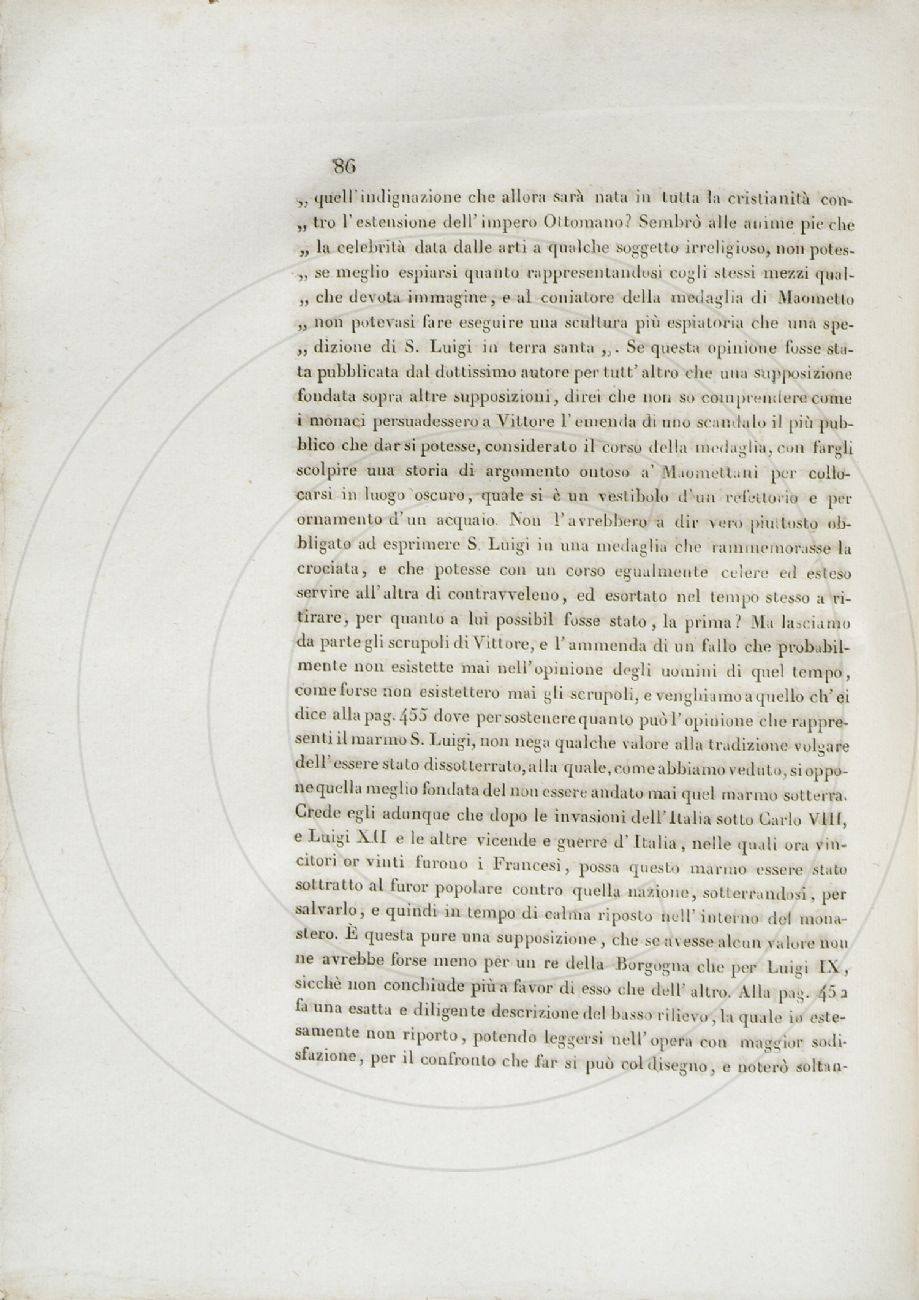 86
„ quell'indignazione che allora sarà nata in tutta la cristianità con-
„ tro l'estensione dell'impero Ottomano? Sembrò alle anime pie che
„ la celebrità data dalle arti a qualche soggetto irreligioso, non potes-
„ se meglio espiarsi quanto rappresentandosi cogli stessi mezzi qual-
„ che devota immagine, e al coniatore della medaglia di Maometto
„ non potevasi fare eseguire una scultura più espiatoria che una spe-
„ dizione di S. Luigi in terra santa „. Se questa opinione fosse sta-
ta pubblicata dal dottissimo autore per tutt'altro che una supposizione
fondata sopra altre supposizioni, direi che non so comprendere come
i monaci persuadessero a Vittore l'emenda di uno scandalo il più pub-
blico che darsi potesse, considerato il corso della medaglia, con fargli
scolpire una storia di argomento ontoso a' Maomettani per collo-
carsi in luogo oscuro, quale si è un vestibolo d'un refettorio e per
ornamento d'un acquaio. Non l'avrebbero a dir vero piuttosto ob-
bligato ad esprimere S. Luigi in una medaglia che rammemorasse la
crociata, e che potesse con un corso egualmente celere ed esteso
servire all'altra di contravveleno, ed esortato nel tempo stesso a ri-
tirare, per quanto a lui possibil fosse stato, la prima? Ma lasciamo
da parte gli scrupoli di Vittore, e l'ammenda di un fallo che probabil-
mente non esistette mai nell'opinione degli uomini di quel tempo,
come forse non esistettero mai gli scrupoli, e venghiamo a quello ch'ei
dice alla pag. 455 dove per sostenere quanto può l'opinione che rappre-
senti il marmo S. Luigi, non nega qualche valore alla tradizione volgare
dell'essere stato dissotterrato, alla quale, come abbiamo veduto, si oppo-
ne quella meglio fondata del non essere andato mai quel marmo sotterra.
Crede egli adunque che dopo le invasioni dell'Italia sotto Carlo VIII,
e Luigi XII e le altre vicende e guerre d'Italia, nelle quali ora vin-
citori or vinti furono i Francesi, possa questo marmo essere stato
sottratto al furor popolare contro quella nazione, sotterrandosi, per
salvarlo, e quindi in tempo di calma riposto nell'interno del mona-
stero. È questa pure una supposizione, che se avesse alcun valore non
ne avrebbe forse meno per un re della Borgogna che per Luigi IX,
sicchè non conchiude più a favor di esso che dell'altro. Alla pag. 452
fa una esatta e diligente descrizione del basso rilievo, la quale io este-
samente non riporto, potendo leggersi nell'opera con maggior sodi-
sfazione, per il confronto che far si può col disegno, e noterò soltan-